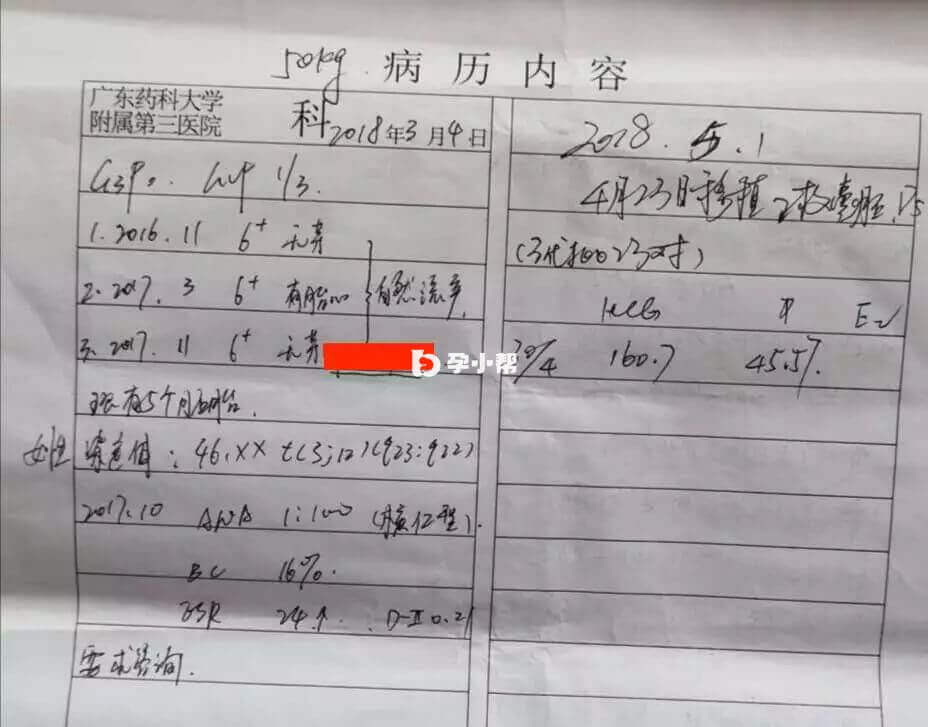 50kg 病历内容
广东药科大学
附属第三医院
科 2018年3月4日
G3P0. LMP 1/3.
1. 2016.11 6⁺ 无芽
2. 2017.3 6⁺ 有胎心 自然流产
3. 2017.11 6⁺ 无芽
现有5个囊胚.
女性 染色体: 46,XX t(3;12)(q23;q22)
2017.10 ANA 1:100 (核仁型).
BC 16%.
ESR 24↑. D-二 0.21
要求咨询.
2018.5.1
4月23日移植2枚囊胚,
HCG P E2
30/4 160.7 45.57.
孕小帮